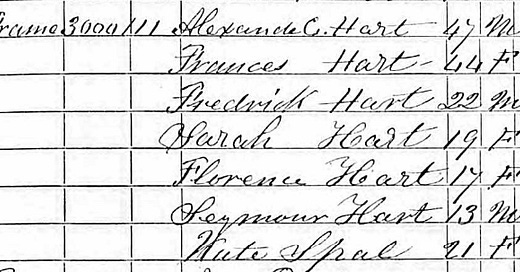 Frame 3000 111 Alexande C. Hart 47 M
Frances Hart 44 F
Fredrick Hart 22 M
Sarah Hart 19 F
Florence Hart 17 F
Seymour Hart 13 M
Kate 21 F